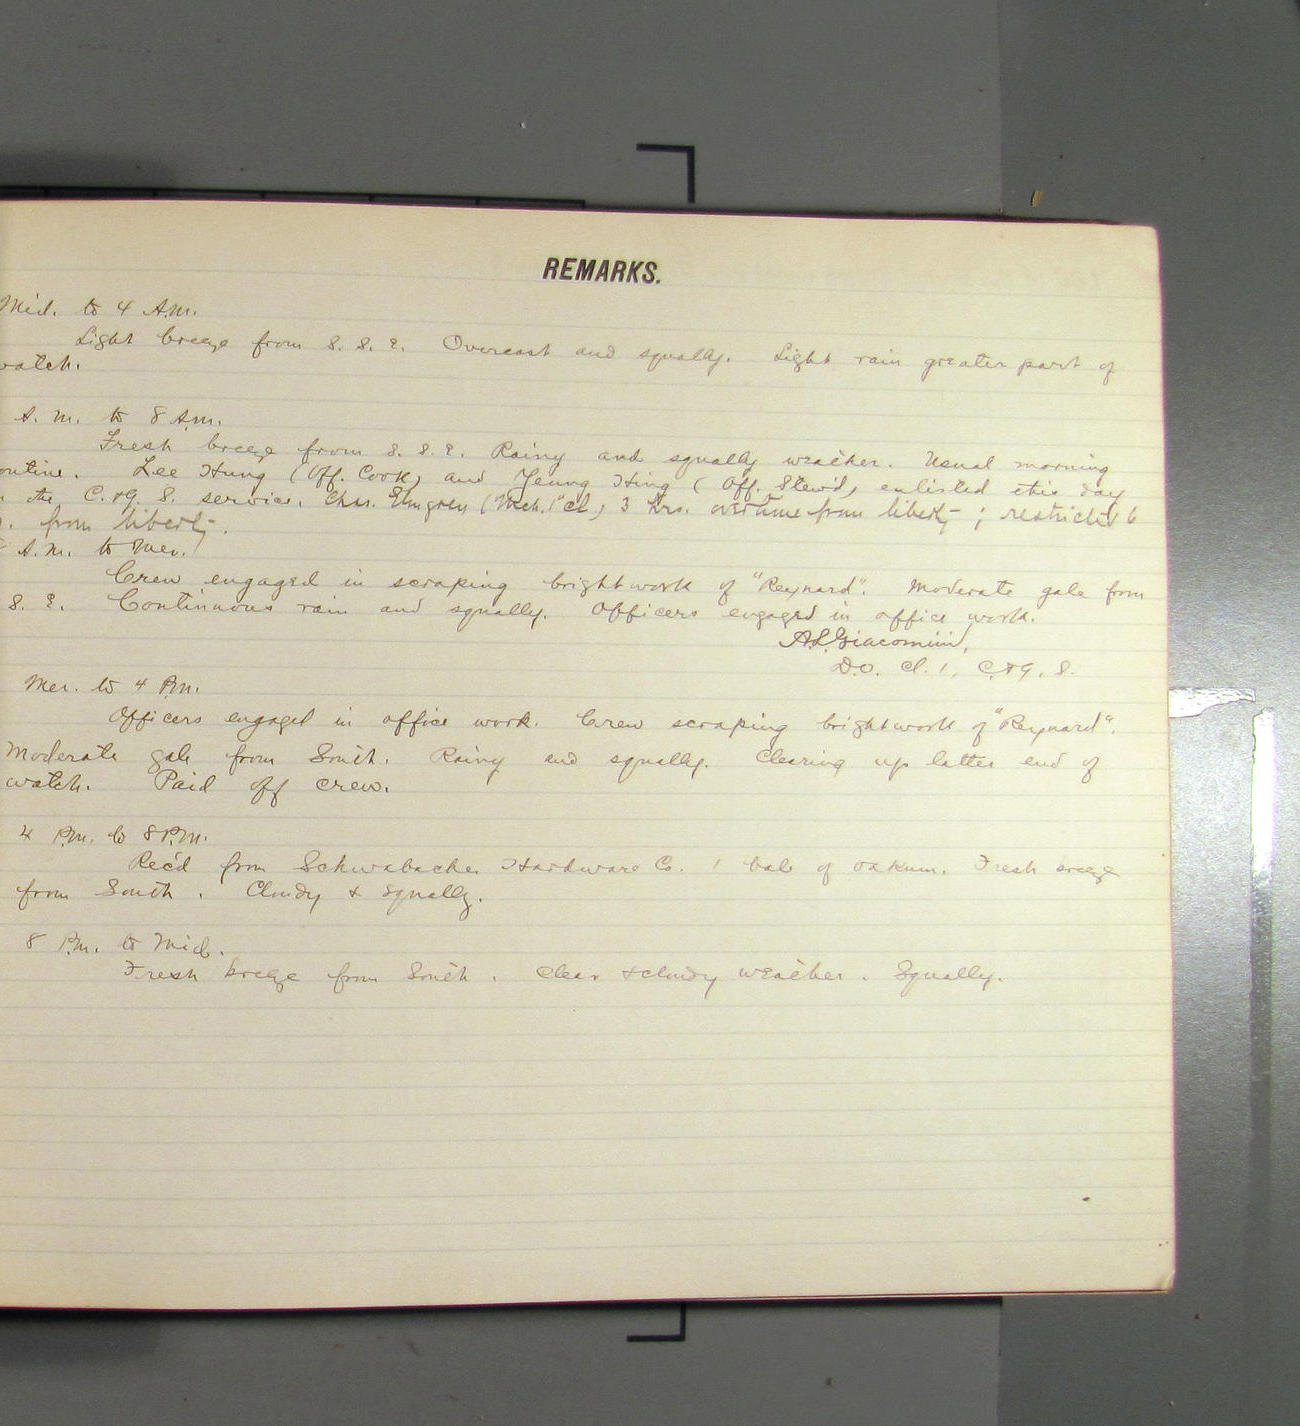 REMARKS.
Mid. to 4 A.M.
Light breeze from S. S. E. Overcast and squally. Light rain greater part of
watch.
A. M. to 8 A.M.
Fresh breeze from S. S. E. Rainy and squally weather. Usual morning
outine. Lee Hung (Off. Cook) and Yeung Hing (Off. Stew'd) enlisted this day
the C. & G. S. service. Chas. Elmgren (Mch. 1" cl.) 3 Hrs. overtime from liberty; restricted 6
from liberty.
A.M. to Mer.
Crew engaged in scraping brightwork of "Reynard". Moderate gale from
S. E. Continuous rain and squally. Officers engaged in office work.
A.L. Giacomini,
D.O. Cl. 1, C. & G. S.
Mer. to 4 P.M.
Officers engaged in office work. Crew scraping brightwork of "Reynard".
Moderate gale from South. Rainy and squally. Clearing up latter end of
watch. Paid off crew.
4 P.M. to 8 P.M.
Rec'd from Schwabacher Hardware Co. 1 bale of oakum. Fresh breeze
from South. Cloudy & squally.
8 P.M. to Mid.
Fresh breeze from South. Clear & cloudy weather. Squally.